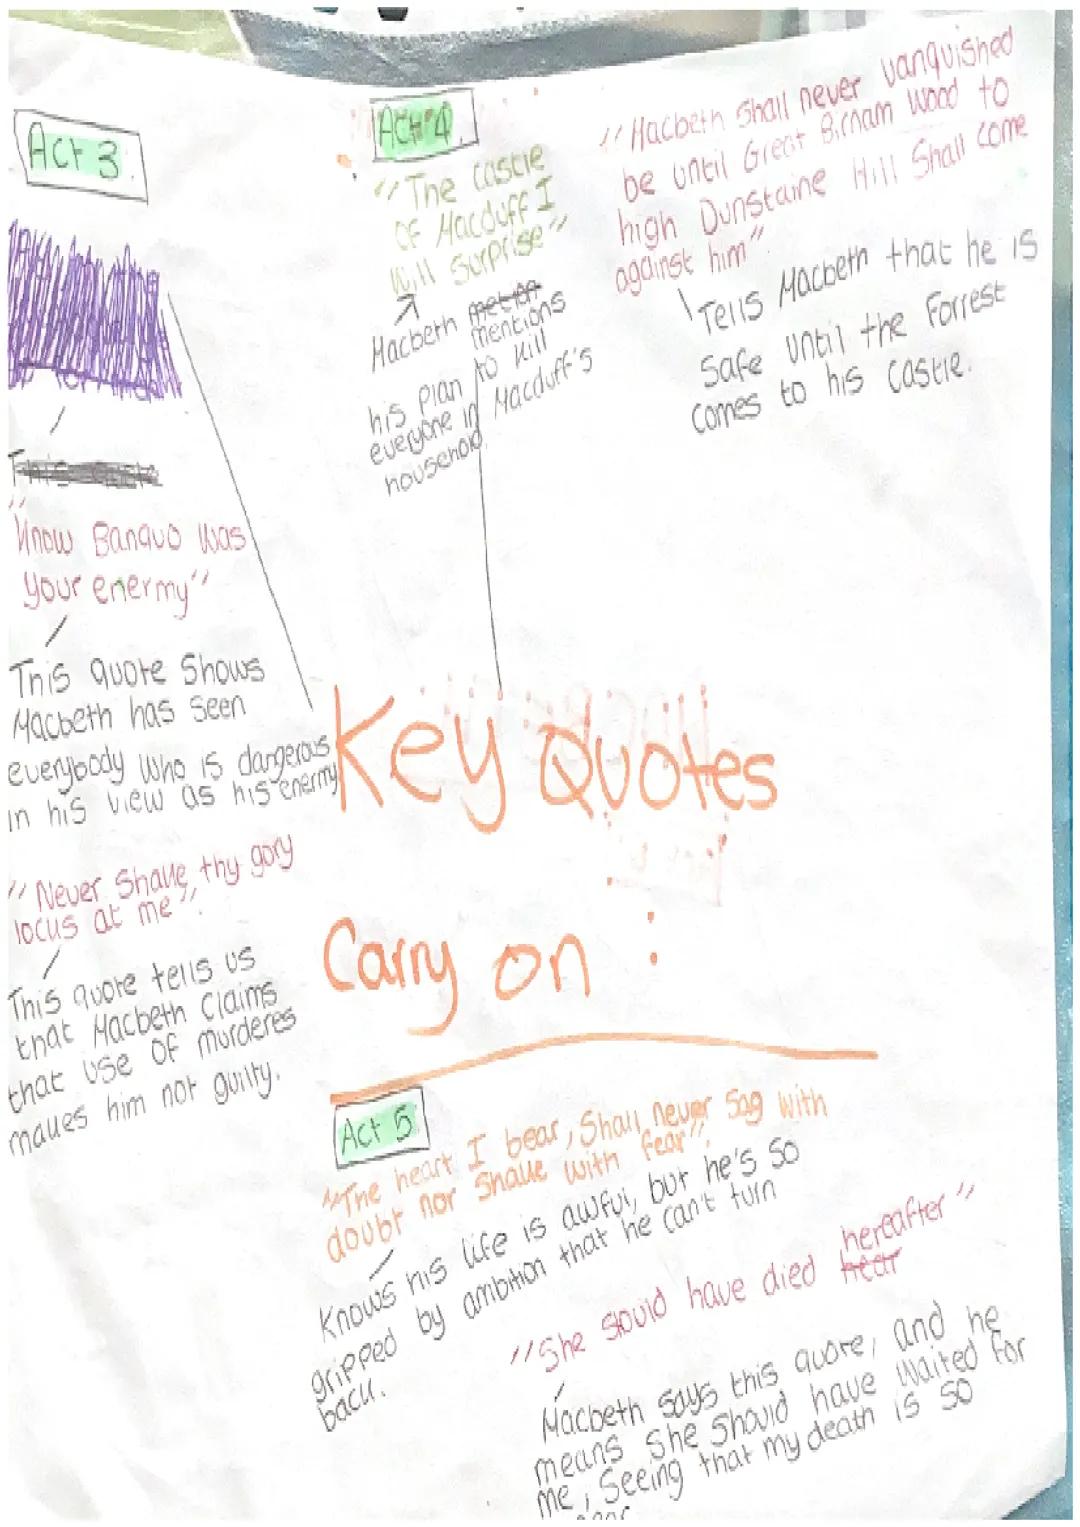 Act 3
"Know Banquo was
your enermy"
This quote shows
Macbeth has seen
everybody who is dangerous
in his view as his enermy
"Never Shake thy gory
locus at me".
This quote tells us
that Macbeth Claims
that use of murderes
makes him not guilty.
Act 4
"The castle
of Macduff I
Will Surprise"
Macbeth
mentions
his plan to kill
everyone in Macduff's
household
"Macbeth Shall never vanquished
be until Great Birnam Wood to
high Dunstaine Hill Shall come
against him"
Tells Macbeth that he is
Safe until the Forrest
comes to his castle.
Key Quotes
Carry on :
Act 5
"The heart I bear, Shall never Sag with
doubt nor Shake with fear".
Knows his life is awful, but he's so
gripped by ambition that he can't turn
back.
"She should have died hereafter"
Macbeth says this quote, and he
means she should have waited for
me, Seeing that my death is so